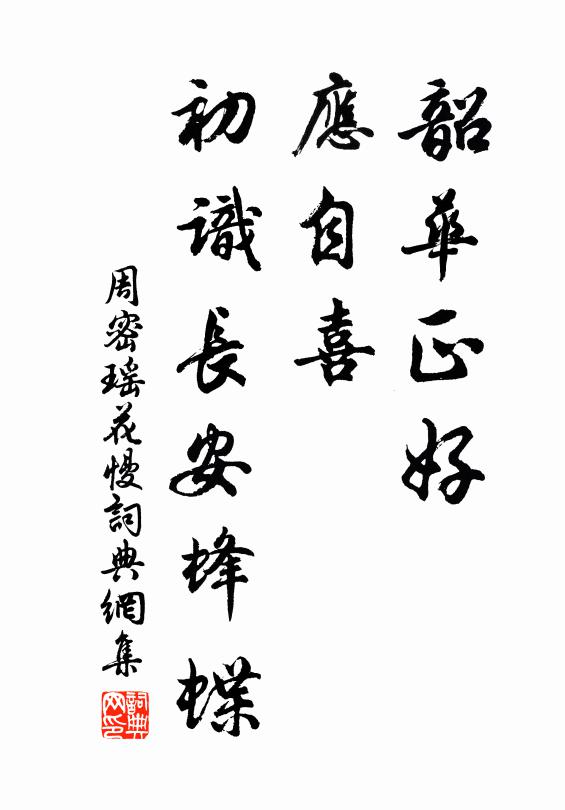 韶華正好
應自喜
初識長安蜂蝶
周密瑶花慢詞典網集
詞典网印